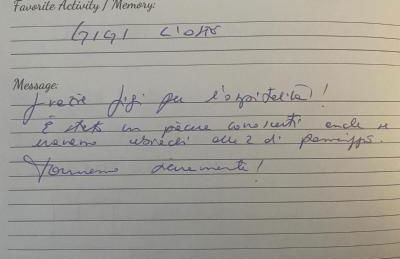 Favorite Activity / Memory:
GIGI L'OSTE
Message:
Grazie Gigi per l'ospitalità!
È stato un piacere conoscerti anche se
eravamo ubriachi alle 2 di pomeriggio.
Torneremo sicuramente!